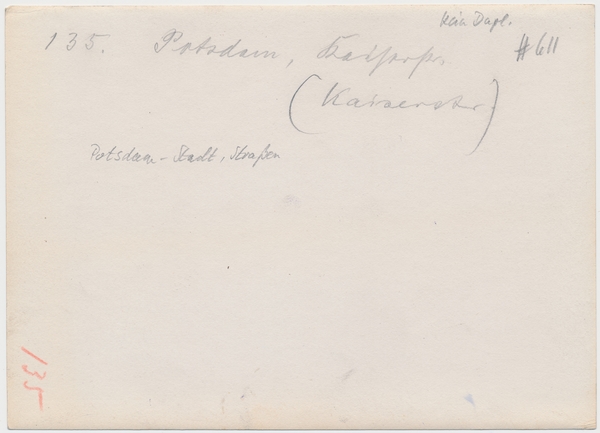 Kein Dupl.
135. Potsdam, Kaiserstr. #611
(Kaiserstr.)
Potsdam-Stadt, Straßen
135